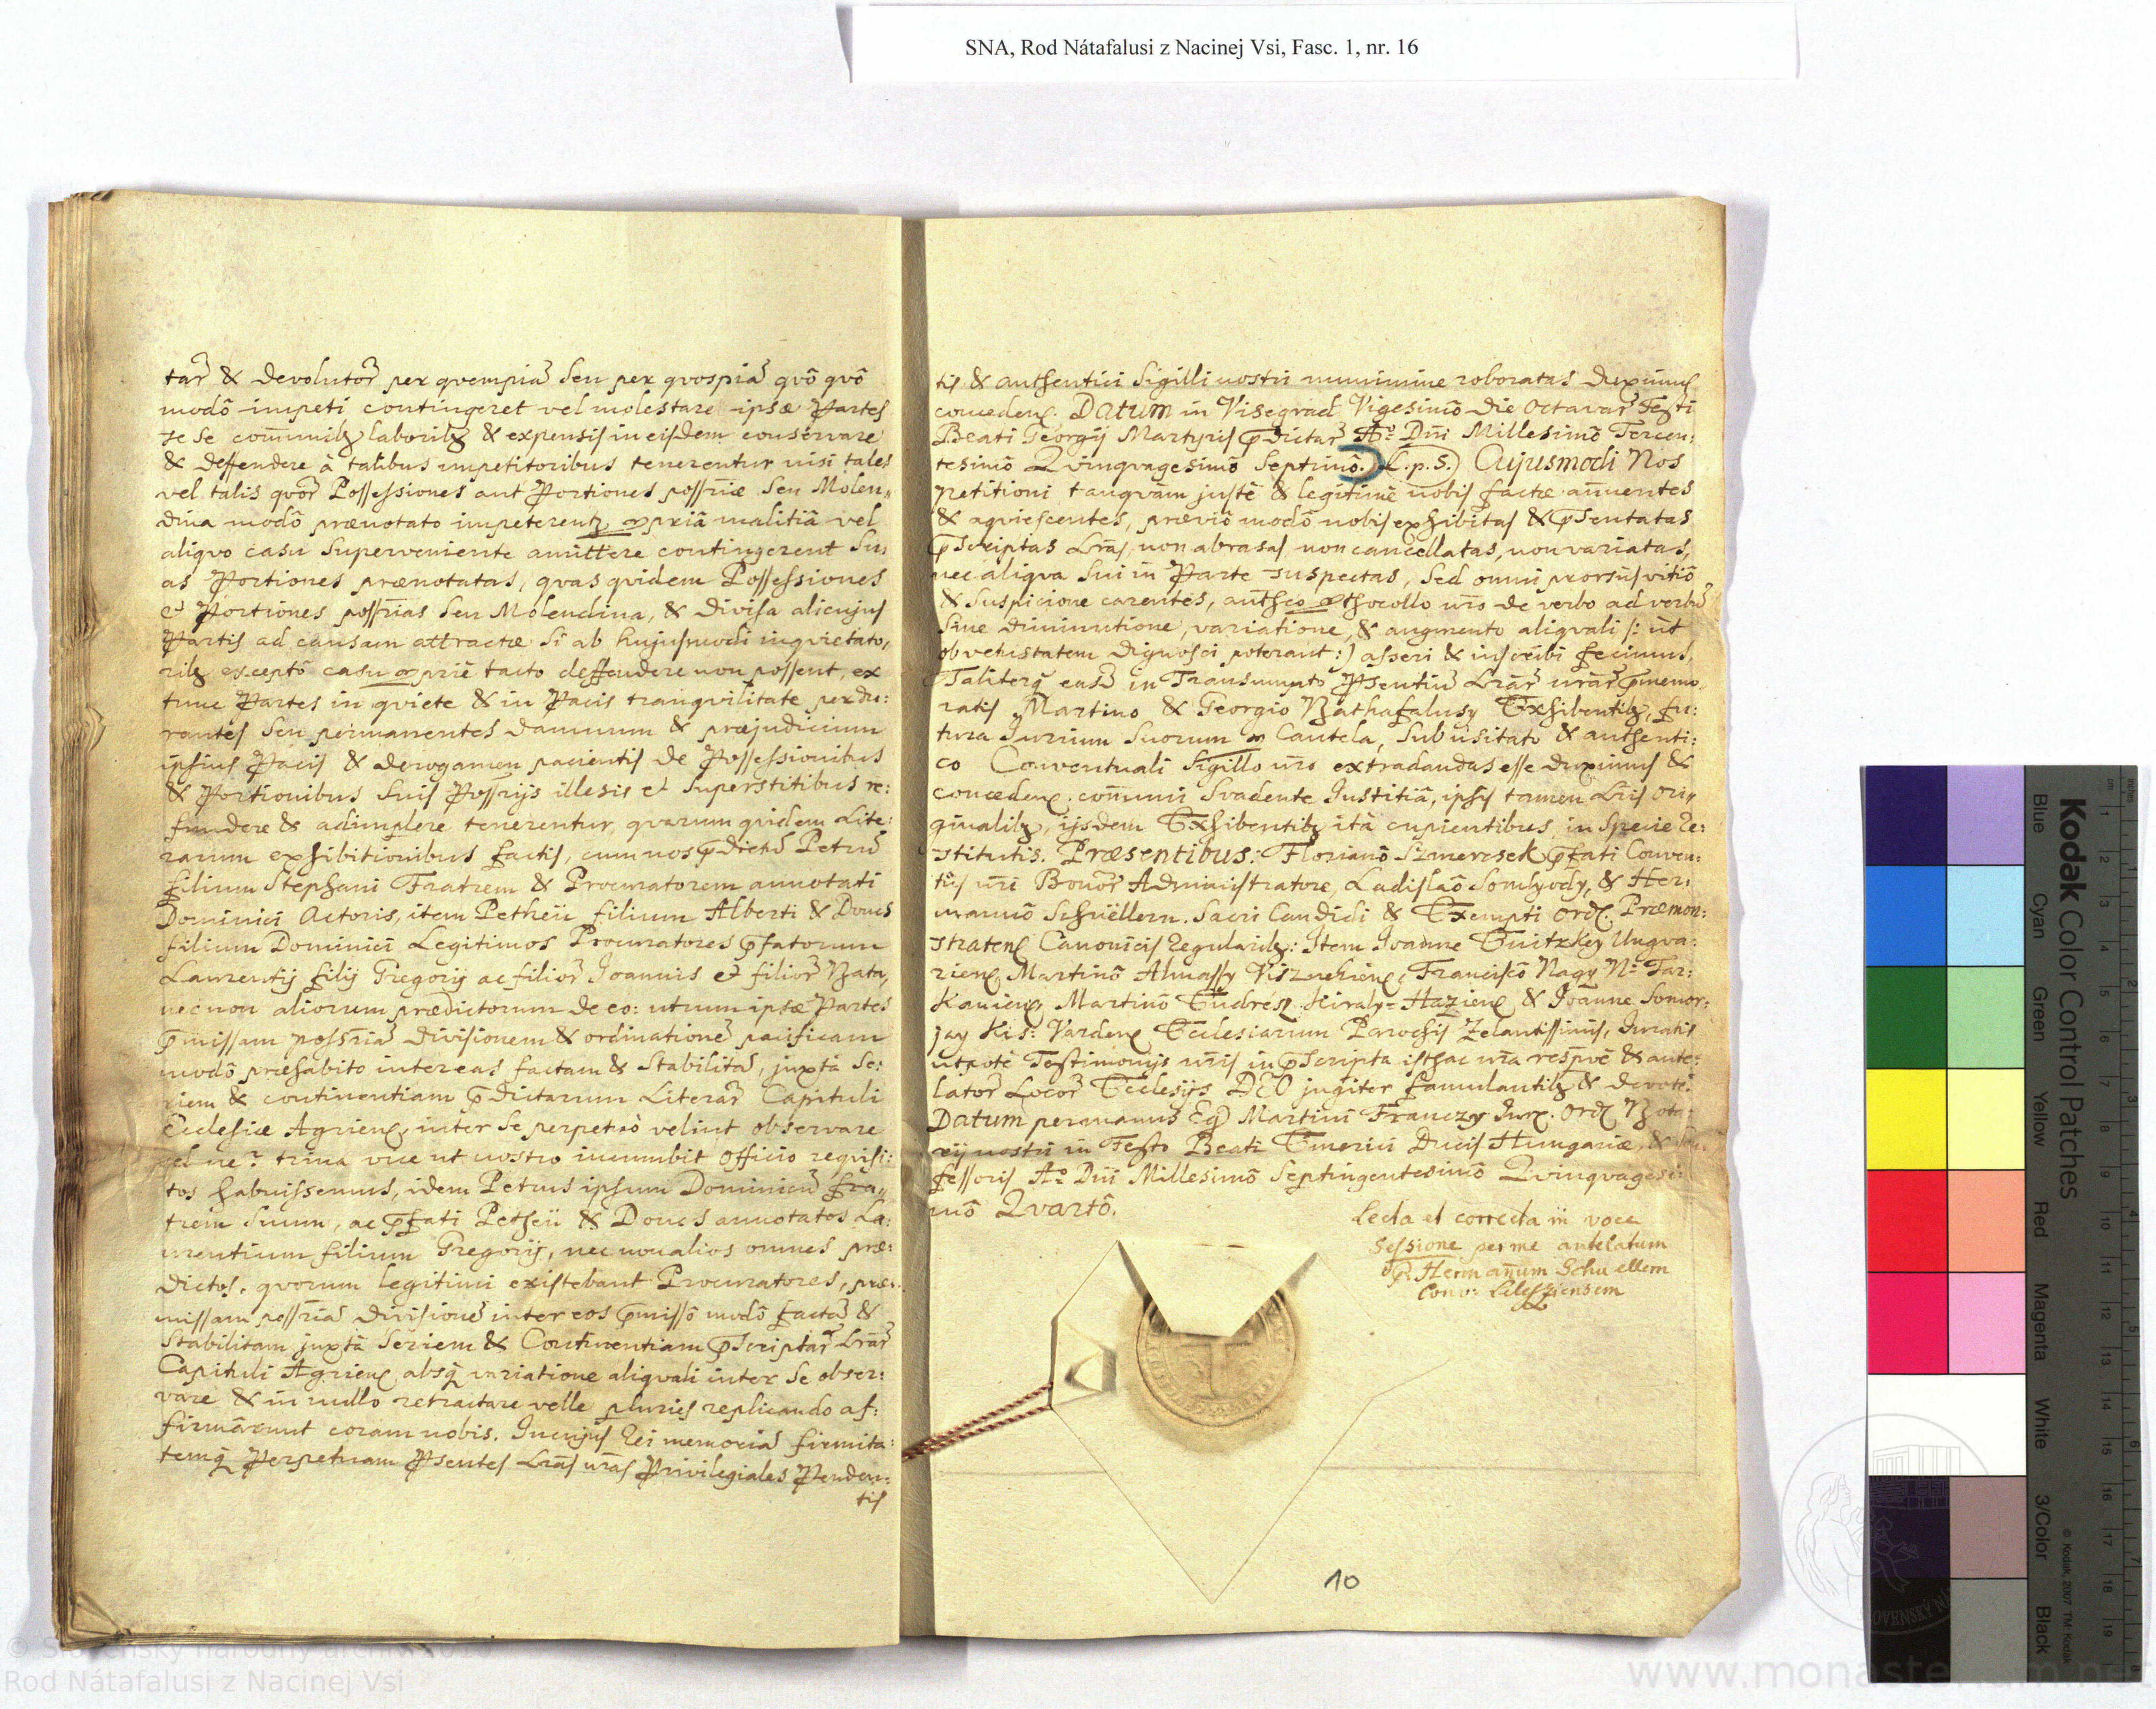 SNA, Rod Nátafalusi z Nacinej Vsi, Fasc. 1, nr. 16
tar̃ & devolutor̃ per qvempiã Seu per qvospiã qvô qvô
modô impeti contingeret vel molestare ipsæ Partes
se se com̄unibꝫ laboribꝫ & expensis in eisdem conservare
& deffendere à talibus impetitoribus tenerentur nisi tales
vel talis qvor̃ Possessiones aut Portiones possr̄iæ Seu Molen„
dina modô prænotato impeterentꝫ ꝓpriâ malitiâ vel
aliqvo casu Superveniente amittere contingerent Su„
as Portiones prænotatas, qvas qvidem Possessiones
et Portiones possr̄ias Seu Molendina, & divisa alicujus
Partis ad causam attractæ Si ab hujusmodi inqvietato„
ribꝫ exceptô casu ꝓpriè tacto deffendere non possent, ex
tunc Partes in qviete & in Pacis tranqvilitate perdu:
rantes Seu permanentes damnum & præjudicium
ipsius Pacis & derogamen pacientis de Possessionibus
& Portionibus Suis Possr̄ijs illesis et Superstitibus re:
fundere & adimplere tenerentur, qvarum qvidem Lite:
rarum exhibitionibus factis, cum nos p̄dictũ Petrũ
filium Stephani Fratrem & Procuratorem annotati
Dominici Actoris, item Petheü filium Alberti & Doncs
filium Dominici Legitimos Procuratores p̄fatorum
Laurentij filij Gregorij ac filior̃ Joannis et filior̃ Nata,
nec non aliorum prædictorum de eo: utrum ipsæ Partes
p̄missam possr̄iã divisionem & ordinationẽ pacificam
modô præhabito inter eas factam & Stabilitã, juxtà Se:
riem & continentiam p̄dictarum Literar̃ Capituli
Ecclesiæ Agrienꝭ inter Se perpetuò velint observare
vel ne? trina vice ut nostro incumbit officio reqvisi:
tos habuissemus, idem Petrus ipsum Dominicũ fra„
trem Suum, ac p̄fati Petheü & Doncs annotatos La:
urentium filium Gregorij, nec non alios omnes præ:
dictos, qvorum legitimi existebant Procuratores, præ:
missam possr̄iã divisionẽ inter eos p̄missô modô factã &
Stabilitam juxtà Seriem & Continentiam p̄scriptar̃ Lr̄ar̃
Capituli Agrienꝭ absq̃ variatione aliqvali inter Se obser:
vare & in nullo retractare velle pluries replicando af:
firmârunt coram nobis. In cujus Rei memoriã firmita:
temq̃ Perpetuam Pr̄sentes Lr̄as nr̄as Privilegiales Penden:
tis
tis & authentici Sigilli nostri munimine roboratas duximus
concedenꝭ. Datum in Visegrad Vigesimô die Octavar̃ Festi
Beati Georgij Martyris p̄dictar̃ Aō Dn̄i Millesimô Tercen:
tesimô Qvinqvagesimô Septimô. (L.p.S.) Cujusmodi Nos
petitioni tanqvàm justè & legitimè nobis factæ an̄uentes
& aqviescentes, præviô modô nobis exhibitas & p̄sentatas
p̄scriptas Lr̄as, non abrasas, non cancellatas, non variatas,
nec aliqva Sui in Parte suspectas, Sed omni prorsùs vitiô
& Suspicione carentes, authco ꝓthocollo nr̄o de verbo ad verbũ
Sine diminutione, variatione, & augmento aliqvali (: ùt
ob vetustatem dignosci poterant :) asseri & inscribi fecimus,
Taliterq̃ easđ in Transumpto Pr̄sentiũ Lr̄ar̃ nr̄ar̃ p̄memo„
ratis Martino & Georgio Nathafalusy Exhibentibꝫ, fu:
tura Jurium Suorum ꝓ Cautela, Sub usitato & authenti:
co Conventuali Sigillo nr̄o extradandas esse duximus &
concedenꝭ. com̄uni Svadente Justitiâ, ipsis tamen Lr̄is Ori„
ginalibꝫ, ijsdem Exhibentibꝫ ità cupientibus in Specie Re:
stitutis. Præsentibus: Florianô Szmercsek p̄fati Conven:
tûs nr̄i Bonor̃ Administratore, Ladislaô Somlyody, & Her:
mannô Schüellern. Sacri Candidi & Exempti Ordꝭ. Præmon:
stratenꝭ Canonicis Regularibꝫ: Item Joanne Enitzkey Ungva:
rienꝭ, Martinô Almassy Visznekienꝭ, Franciscô Nagy N: Tar:
kanienꝭ Martinô Endresz Kiraly-Hazienꝭ & Joanne Somor:
jay Kis: Vardenꝭ Ecclesiarum Parochis Zelantissimis, Juratis
utpotè Testimonijs nr̄is in p̄scripta isthac nr̄a respvè & ante:
lator̃ Locor̃ Ecclesijs DEO jugiter famulantibꝫ & devotè.
Datum per manus Egꝭ Martini Franczy Jurꝭ. Ordꝭ Nota:
rij nostri in Festo Beati Emerici Ducis Hungariæ, & Con
fessoris Aō Dn̄i Millesimô Septingentesimô Qvinqvagesi:
mô Qvartô.
Lecta et correcta in voca
Sessione per me antelatum
P. Herman̄um Schuellern
Conv: Leleszienсem
10
Kodak Color Control Patches
Blue Cyan Green Yellow Red Magenta White 3/Color Black
© Kodak, 2007 TM: Kodak
© Slovenský národný archív
Rod Nátafalusi z Nacinej Vsi
www.monasterium.net